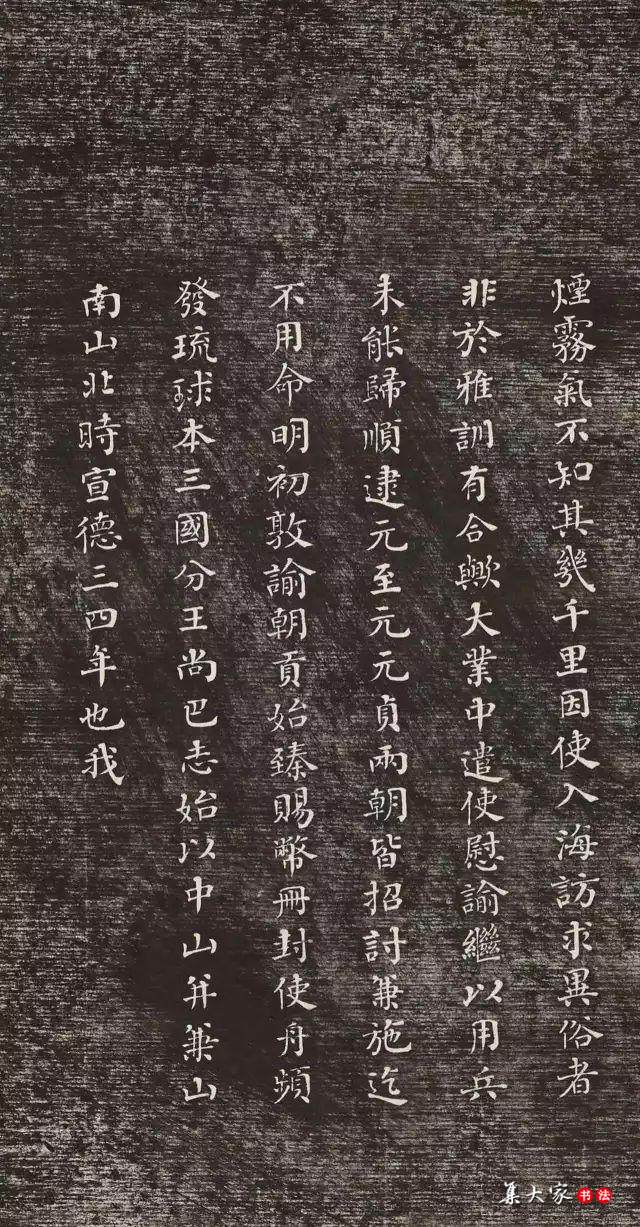 煙霧氣不知其幾千里因使入海訪求異俗者
非於雅訓有合歟大業中遣使慰諭繼以用兵
未能歸順逮元至元元貞兩朝皆招討兼施迄
不用命明初敦諭朝貢始臻賜幣冊封使舟頻
發琉球本三國分王尚巴志始以中山并兼山
南山北時宣德三四年也我
集大家书法